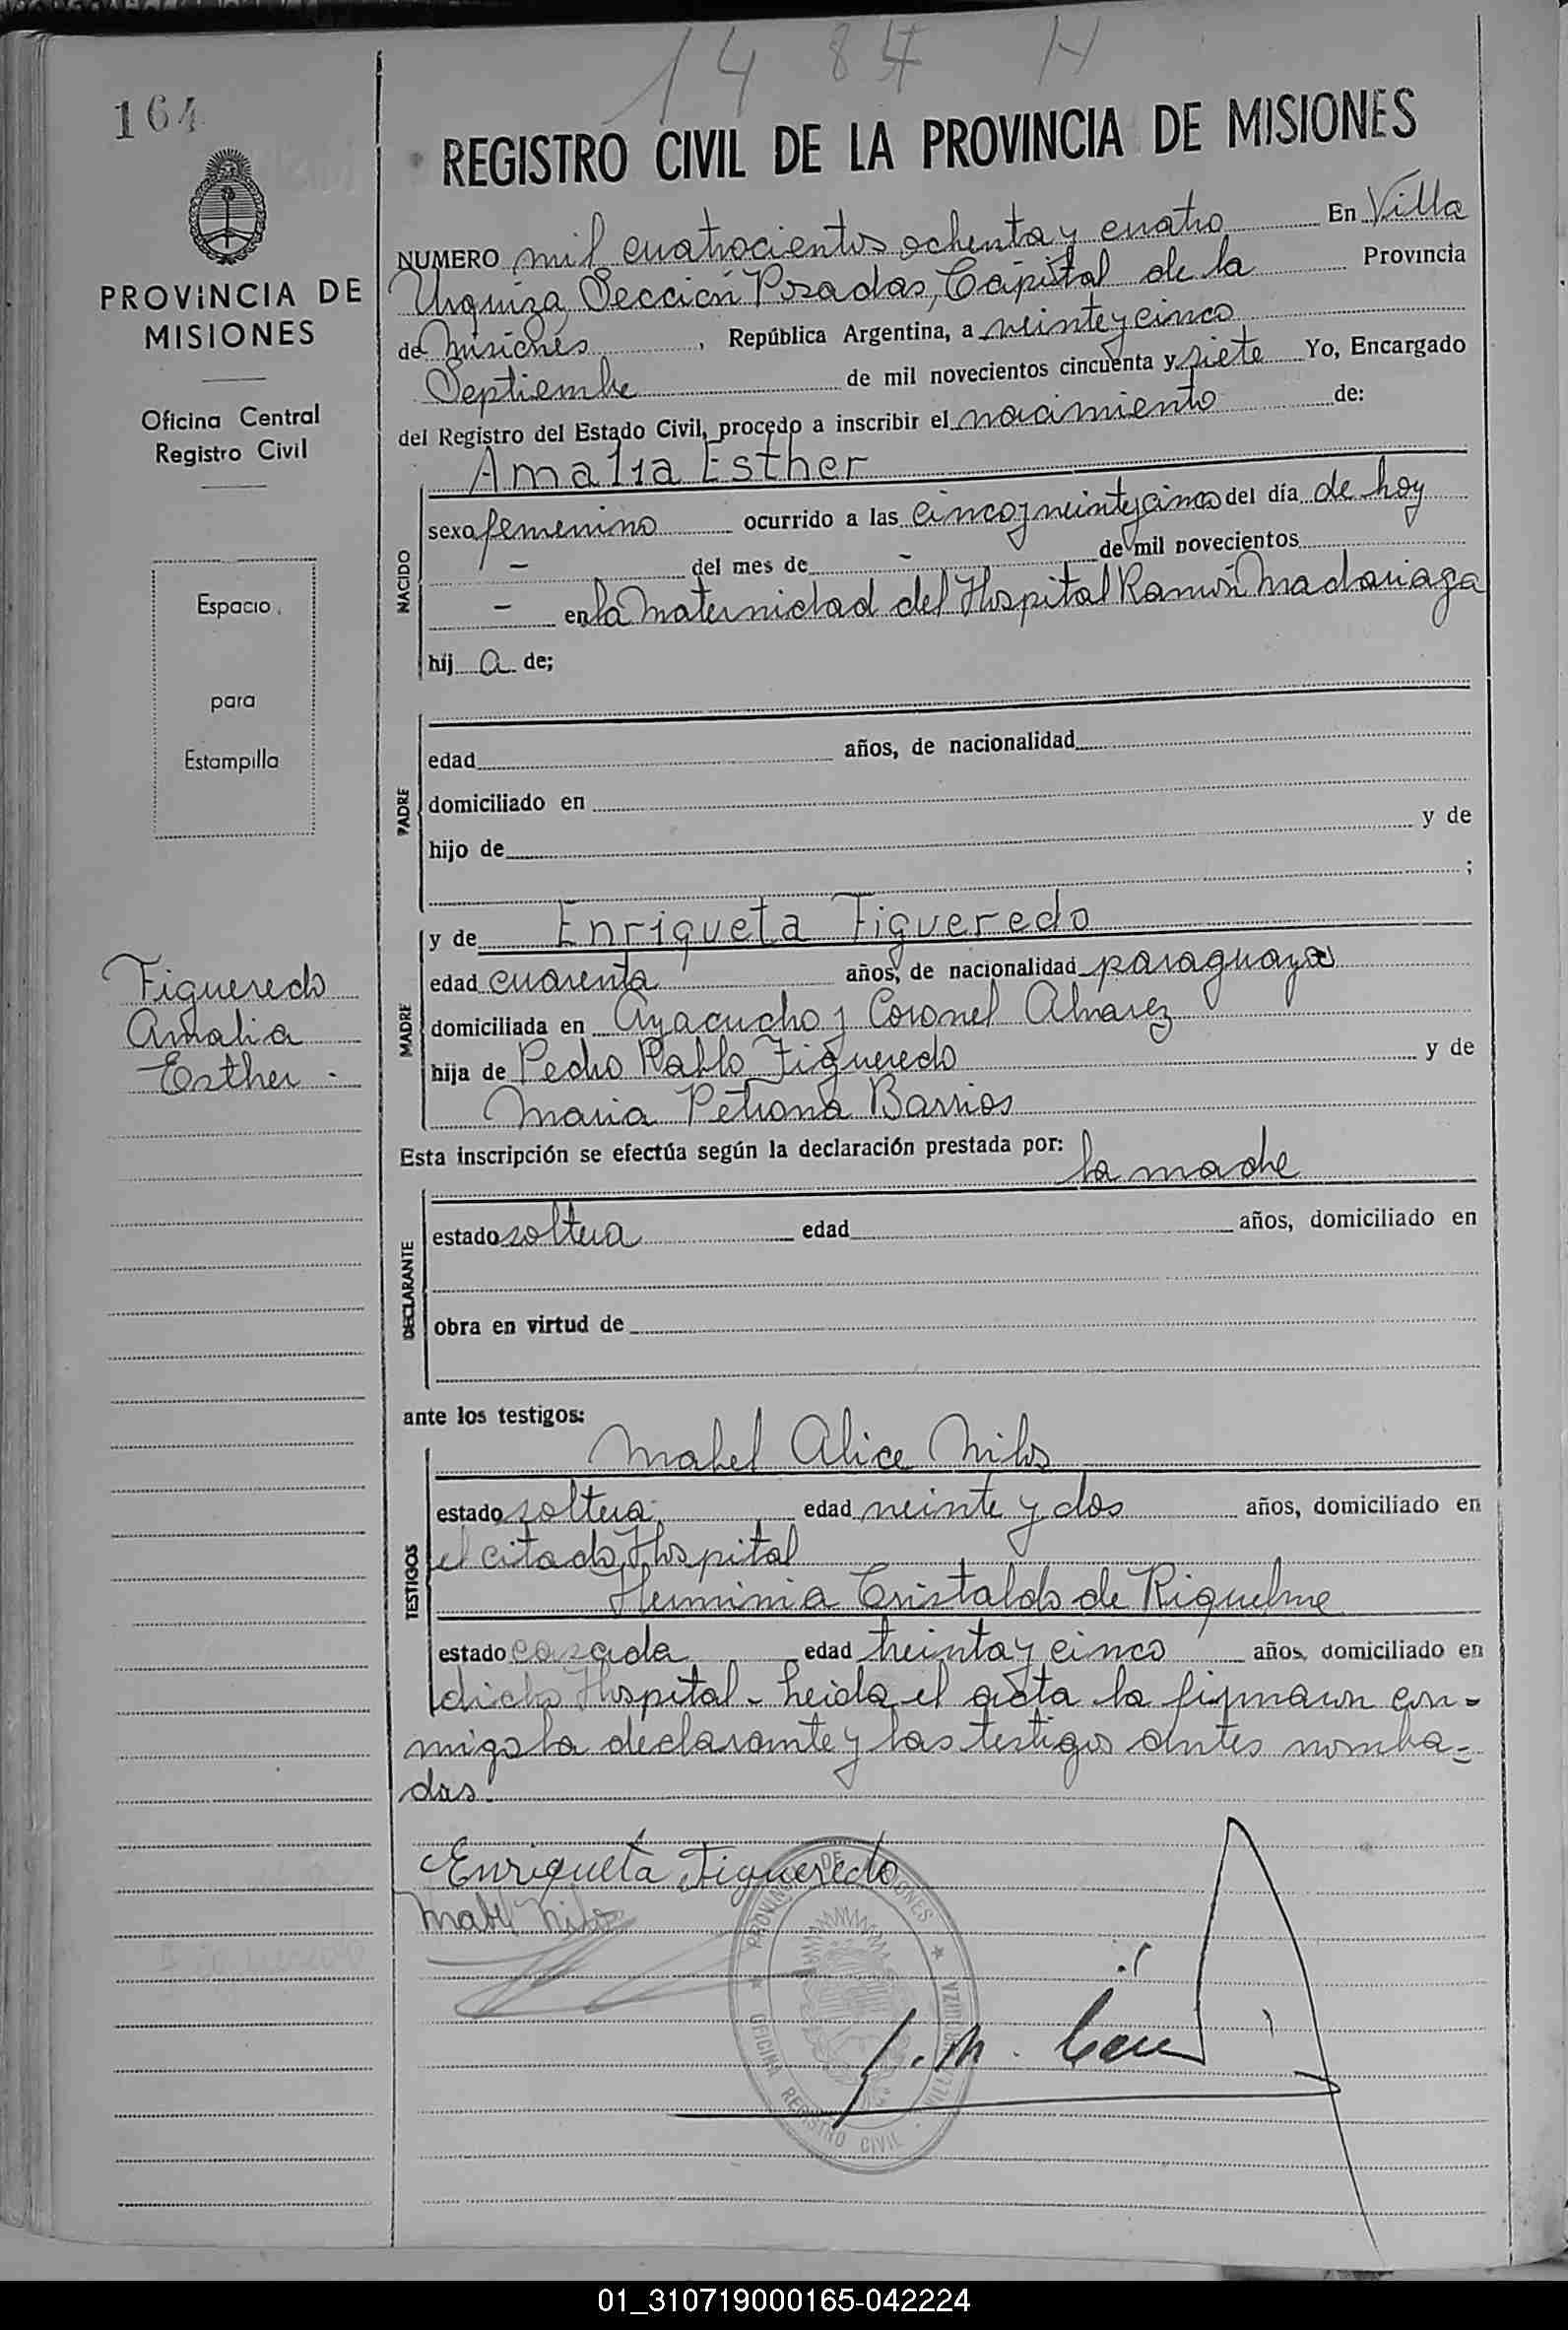 14 84 H
164
REGISTRO CIVIL DE LA PROVINCIA DE MISIONES
PROVINCIA DE
MISIONES
Oficina Central
Registro Civil
Espacio
para
Estampilla
Figueredo
Amalia
Esther.-
NUMERO mil cuatrocientos ochenta y cuatro En Villa
Urquiza, Sección Posadas, Capital de la Provincia
de Misiones, República Argentina, a veinte y cinco
Septiembre de mil novecientos cincuenta y siete Yo, Encargado
del Registro del Estado Civil, procedo a inscribir el nacimiento de:
Amalia Esther
NACIDO
sexo femenino ocurrido a las cinco y veinte y cinco del día de hoy
- del mes de - de mil novecientos
- en la Maternidad del Hospital Ramón Madariaga
hij a de;
PADRE
edad años, de nacionalidad
domiciliado en
hijo de y de
;
MADRE
y de Enriqueta Figueredo
edad cuarenta años, de nacionalidad paraguaya
domiciliada en Ayacucho y Coronel Alvarez
hija de Pedro Pablo Figueredo y de
Maria Petrona Barrios
Esta inscripción se efectúa según la declaración prestada por: la madre
DECLARANTE
estado soltera edad años, domiciliado en
obra en virtud de
ante los testigos:
TESTIGOS
Mabel Alice Nilos
estado soltera edad veinte y dos años, domiciliado en
el citado Hospital
Herminia Cristaldo de Riquelme
estado casada edad treinta y cinco años, domiciliado en
dicho Hospital - Leida el acta la firmaron con-
migo la declarante y las testigos antes nomba-
das.-
Enriqueta Figueredo
Mabel Nilos
PROVINCIA DE MISIONES
OFICINA REGISTRO CIVIL - VILLA URQUIZA
01_310719000165-042224